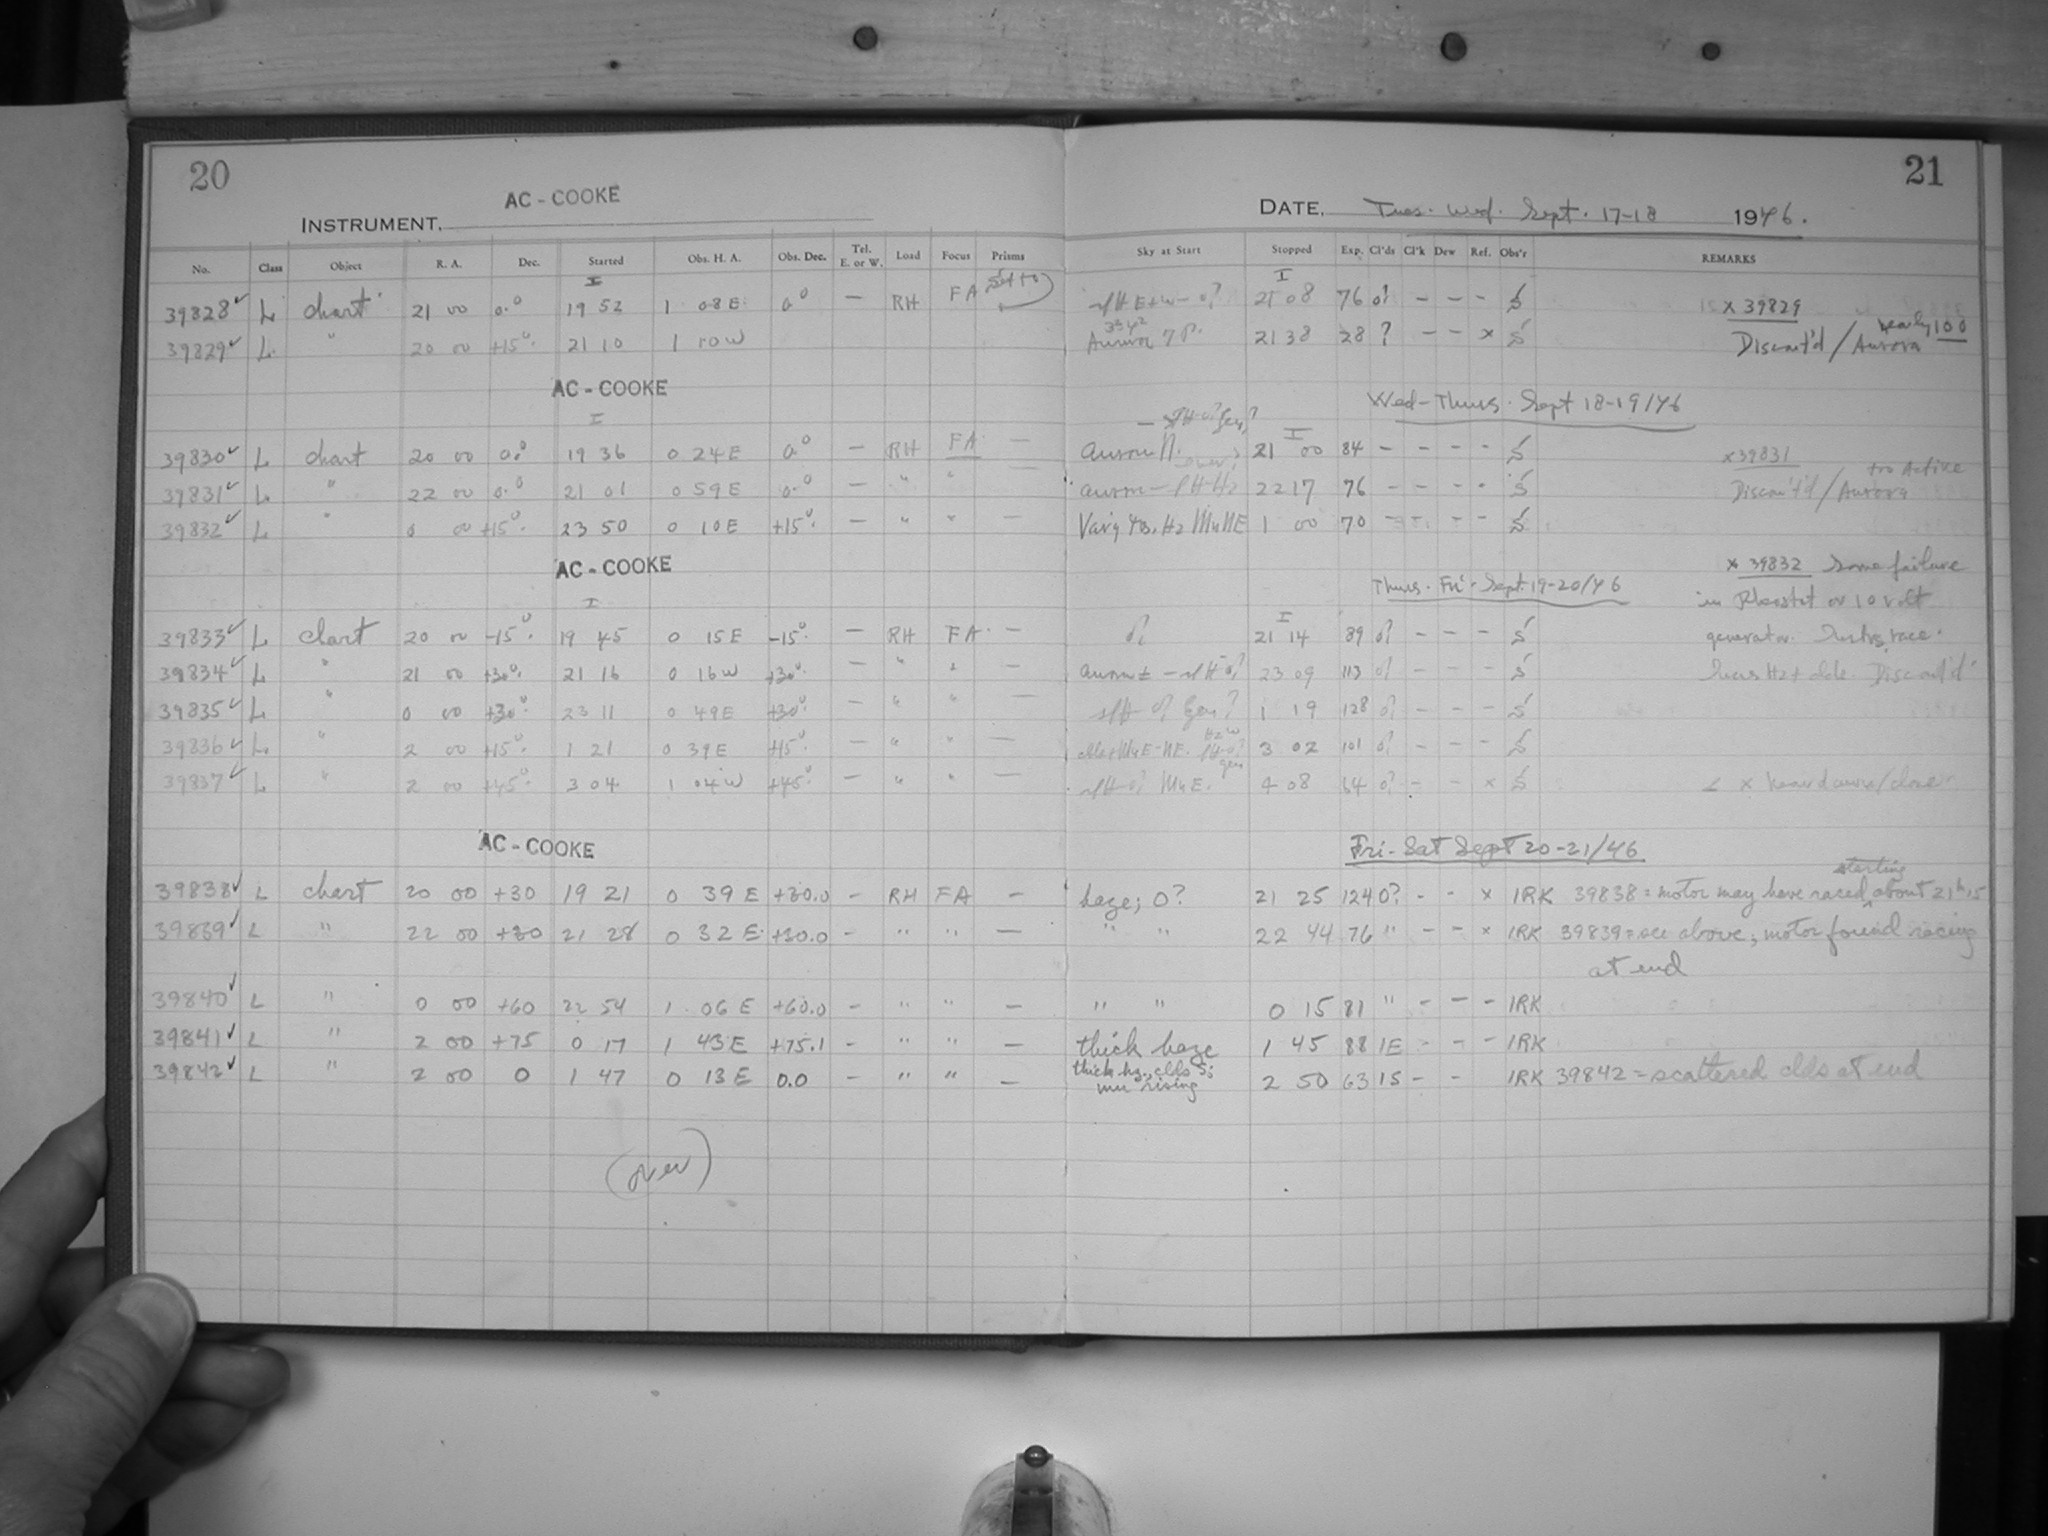 20
21
AC - COOKE
INSTRUMENT.
DATE. Tues. Wed. Sept. 17-18 1946.
No. Class Object R. A. Dec. Started Obs. H. A. Obs. Dec. Tel. E. or W. Load Focus Prisms Sky at Start Stopped Exp. Cl'ds Cl'k Dew Ref. Obs'r REMARKS
I I
39828 L chart 21 00 0.° 19 52 1 08 E 0° — RH FA 21 08 76 0? - - - S x 39829
39829 L " 20 00 +15° 21 10 1 10 W Aurora 21 38 28 ? - - x S Discont'd / Aurora nearly 100
AC - COOKE
Wed-Thurs. Sept 18-19/46
I I
39830 L chart 20 00 0.° 19 36 0 24 E 0° — RH FA — Aurora N. 21 00 84 - - - - S x 39831
39831 L " 22 00 0.° 21 01 0 59 E 0.° — " " — 22 17 76 - - - - S Discont'd / Aurora too Active
39832 L " 0 00 +15° 23 50 0 10 E +15° — " " — 1 00 70 - - - - S
AC - COOKE
Thurs. Fri. Sept. 19-20/46
x 39832 Some failure
in Rheostat or 10 volt
I I
39833 L chart 20 00 -15° 19 45 0 15 E -15° — RH FA — 0? 21 14 89 0? - - - S generator.
39834 L " 21 00 +30° 21 16 0 16 W +30° — " " — 23 09 113 0? - - - S Discont'd
39835 L " 0 00 +30° 23 11 0 49 E +30° — " " — 1 19 128 0? - - - S
39836 L " 2 00 +15° 1 21 0 39 E +15° — " " — 3 02 101 0? - - - S
39837 L " 2 00 +45° 3 04 1 04 W +45° — " " — 4 08 64 0? - - x S
AC - COOKE
Fri-Sat Sept 20-21/46
39838 L chart 20 00 +30 19 21 0 39 E +30.0 — RH FA — haze; 0? 21 25 124 0? - - x IRK 39838 = motor may have raced starting about 21h15
39839 L " 22 00 +30 21 28 0 32 E +30.0 - " " — " " 22 44 76 " - - x IRK 39839 = see above; motor found racing
at end
39840 L " 0 00 +60 22 54 1 06 E +60.0 - " " — " " 0 15 81 " - - - IRK
39841 L " 2 00 +75 0 17 1 43 E +75.1 - " " — thick haze 1 45 88 1E - - - IRK
39842 L " 2 00 0 1 47 0 13 E 0.0 — " " — thick hz., clds S; mn rising 2 50 63 1S - - IRK 39842 = scattered clds at end
(over)